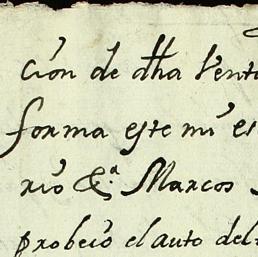 ción de dha vent
forma este mi es
rio &.ª Marcos
probeio el auto del